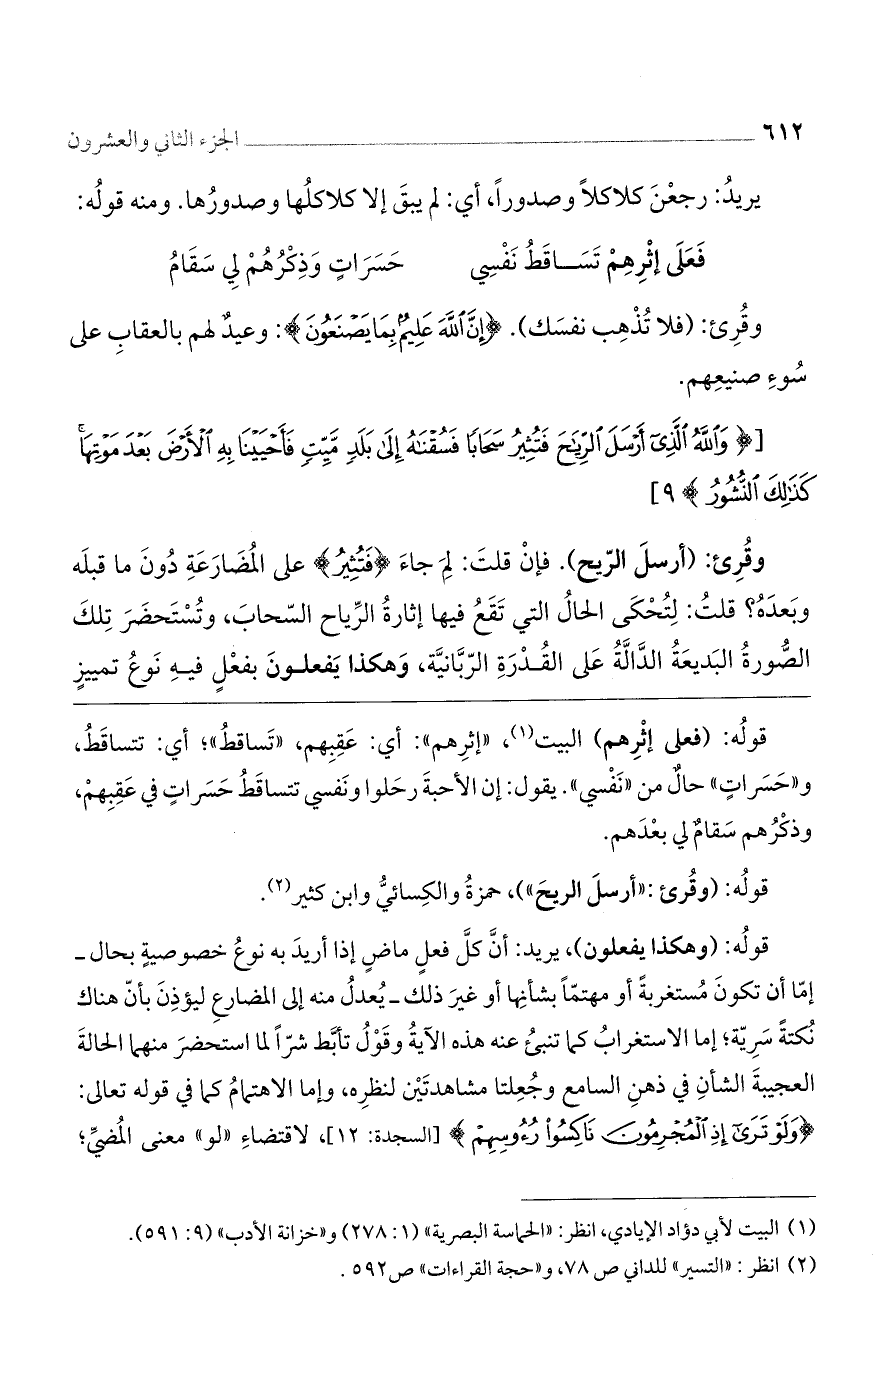 ٦١٢ الجزء الثاني والعشرون
يريدُ: رجعْنَ كلاكلاً وصدوراً، أي: لم يبقَ إلا كلاكلُها وصدورُها. ومنه قولُه:
فَعَلَى إثْرِهِمْ تَسَـاقَطُ نَفْسِي حَسَرَاتٍ وَذِكْرُهُمْ لِي سَقَامُ
وقُرِئ: (فلا تُذْهِب نفسَك). ﴿إِنَّ ٱللَّهَ عَلِيمٌۢ بِمَا يَصْنَعُونَ﴾: وعيدٌ لهم بالعقابِ على
سُوءِ صنيعِهم.
[﴿وَٱللَّهُ ٱلَّذِىٓ أَرْسَلَ ٱلرِّيَٰحَ فَتُثِيرُ سَحَابًا فَسُقْنَٰهُ إِلَىٰ بَلَدٍ مَّيِّتٍ فَأَحْيَيْنَا بِهِ ٱلْأَرْضَ بَعْدَ مَوْتِهَا ۚ
كَذَٰلِكَ ٱلنُّشُورُ﴾ ٩]
وقُرِئ: (أرسلَ الرّيح). فإنْ قلتَ: لِمَ جاءَ ﴿فَتُثِيرُ﴾ على المُضَارَعَةِ دُونَ ما قبلَه
وبَعدَهُ؟ قلتُ: لِتُحْكَى الحالُ التي تَقَعُ فيها إثارةُ الرِّياحِ السّحابَ، وتُسْتَحضَرَ تِلكَ
الصُّورةُ البَديعَةُ الدَّالَّةُ عَلى القُـدْرَةِ الرّبَّانيَّة، وَهكذا يَفعلـونَ بفعْلٍ فيـهِ نَوعُ تمييزٍ
قولُه: (فعلى إثْرِهم) البيت(١)، «إثرِهم»: أي: عَقِبِهم، «تَساقطُ»؛ أي: تتساقَطُ،
و«حَسَراتٍ» حالٌ من «نَفْسي». يقول: إن الأحبةَ رحَلوا ونَفسي تتساقَطُ حَسَراتٍ في عَقِبِهمْ،
وذكْرُهم سَقامٌ لي بعْدَهم.
قولُه: (وقُرِئ: «أرسلَ الريحَ»)، حمزةُ والكِسائيُّ وابن كثير(٢).
قولُه: (وهكذا يفعلون)، يريد: أنَّ كلَّ فعلٍ ماضٍ إذا أريدَ به نوعُ خصوصيةٍ بحال ـ
إمّا أن تكونَ مُستغربةً أو مهتمّاً بشأنِها أو غيرَ ذلك ـ يُعدلُ منه إلى المضارعِ ليؤذِنَ بأنّ هناك
نُكتةً سَرِيّة؛ إما الاستغرابُ كما تنبئُ عنه هذه الآيةُ وقَوْلُ تأبَّط شرّاً لما استحضرَ منهما الحالةَ
العجيبةَ الشأنِ في ذهنِ السامع وجُعِلتا مشاهدتَيْن لنظرِه، وإما الاهتمامُ كما في قوله تعالى:
﴿وَلَوْ تَرَىٰٓ إِذِ ٱلْمُجْرِمُونَ نَاكِسُوا۟ رُءُوسِهِمْ﴾ [السجدة: ١٢]، لاقتضاءِ «لو» معنى المُضيِّ؛
(١) البيت لأبي دؤاد الإيادي، انظر: «الحماسة البصرية» (١: ٢٧٨) و«خزانة الأدب» (٩: ٥٩١).
(٢) انظر: «التسير» للداني ص ٧٨، و«حجة القراءات» ص٥٩٢ .